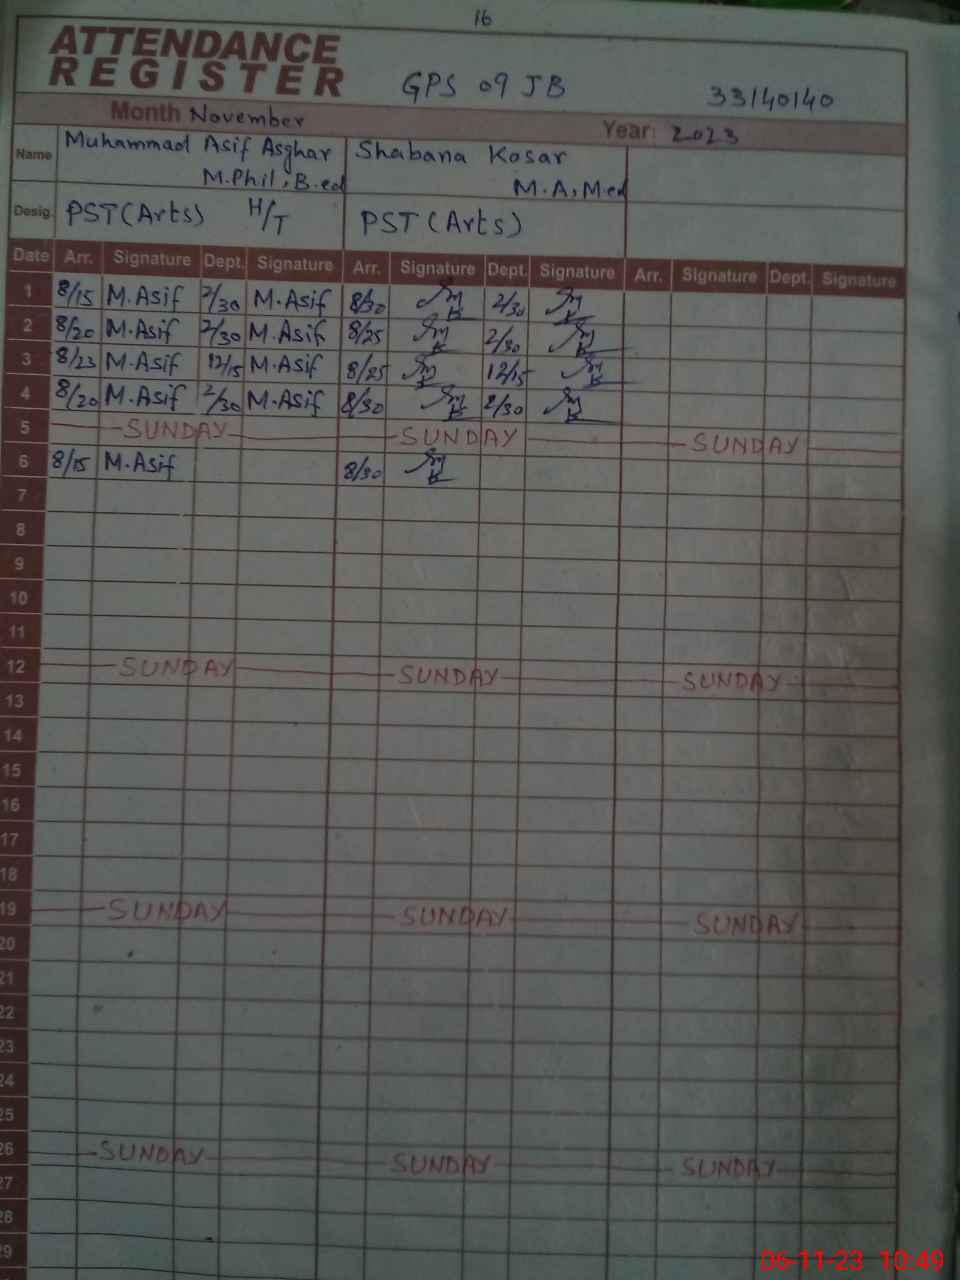 16
ATTENDANCE
REGISTER
GPS 09 JB
33140140
Month November
Year: 2023
Name Muhammad Asif Asghar Shabana Kosar
M.Phil, B.ed M.A, M.ed
Desig. PST (Arts) H/T PST (Arts)
Date Arr. Signature Dept. Signature Arr. Signature Dept. Signature Arr. Signature Dept. Signature
1 8/15 M.Asif 2/30 M.Asif 8/30 2/30
2 8/20 M.Asif 2/30 M.Asif 8/25 2/30
3 8/23 M.Asif 12/15 M.Asif 8/25 12/15
4 8/20 M.Asif 2/30 M.Asif 8/30 2/30
5 SUNDAY SUNDAY SUNDAY
6 8/15 M.Asif 8/30
7
8
9
10
11
12 SUNDAY SUNDAY SUNDAY
13
14
15
16
17
18
19 SUNDAY SUNDAY SUNDAY
20
21
22
23
24
25
26 SUNDAY SUNDAY SUNDAY
27
28
29
06-11-23 10:49